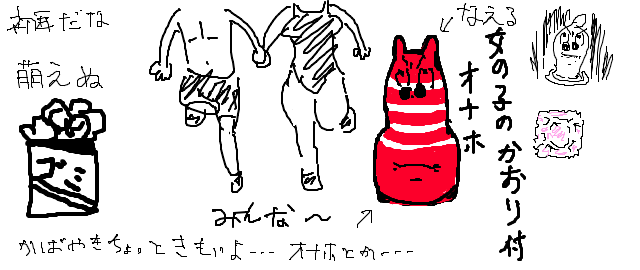 斬新だな
萌えぬ
ゴミ
なえる
女の子のかおり付
オナホ
みんな〜
かばやきちょっときもいよ--- オナホとか---